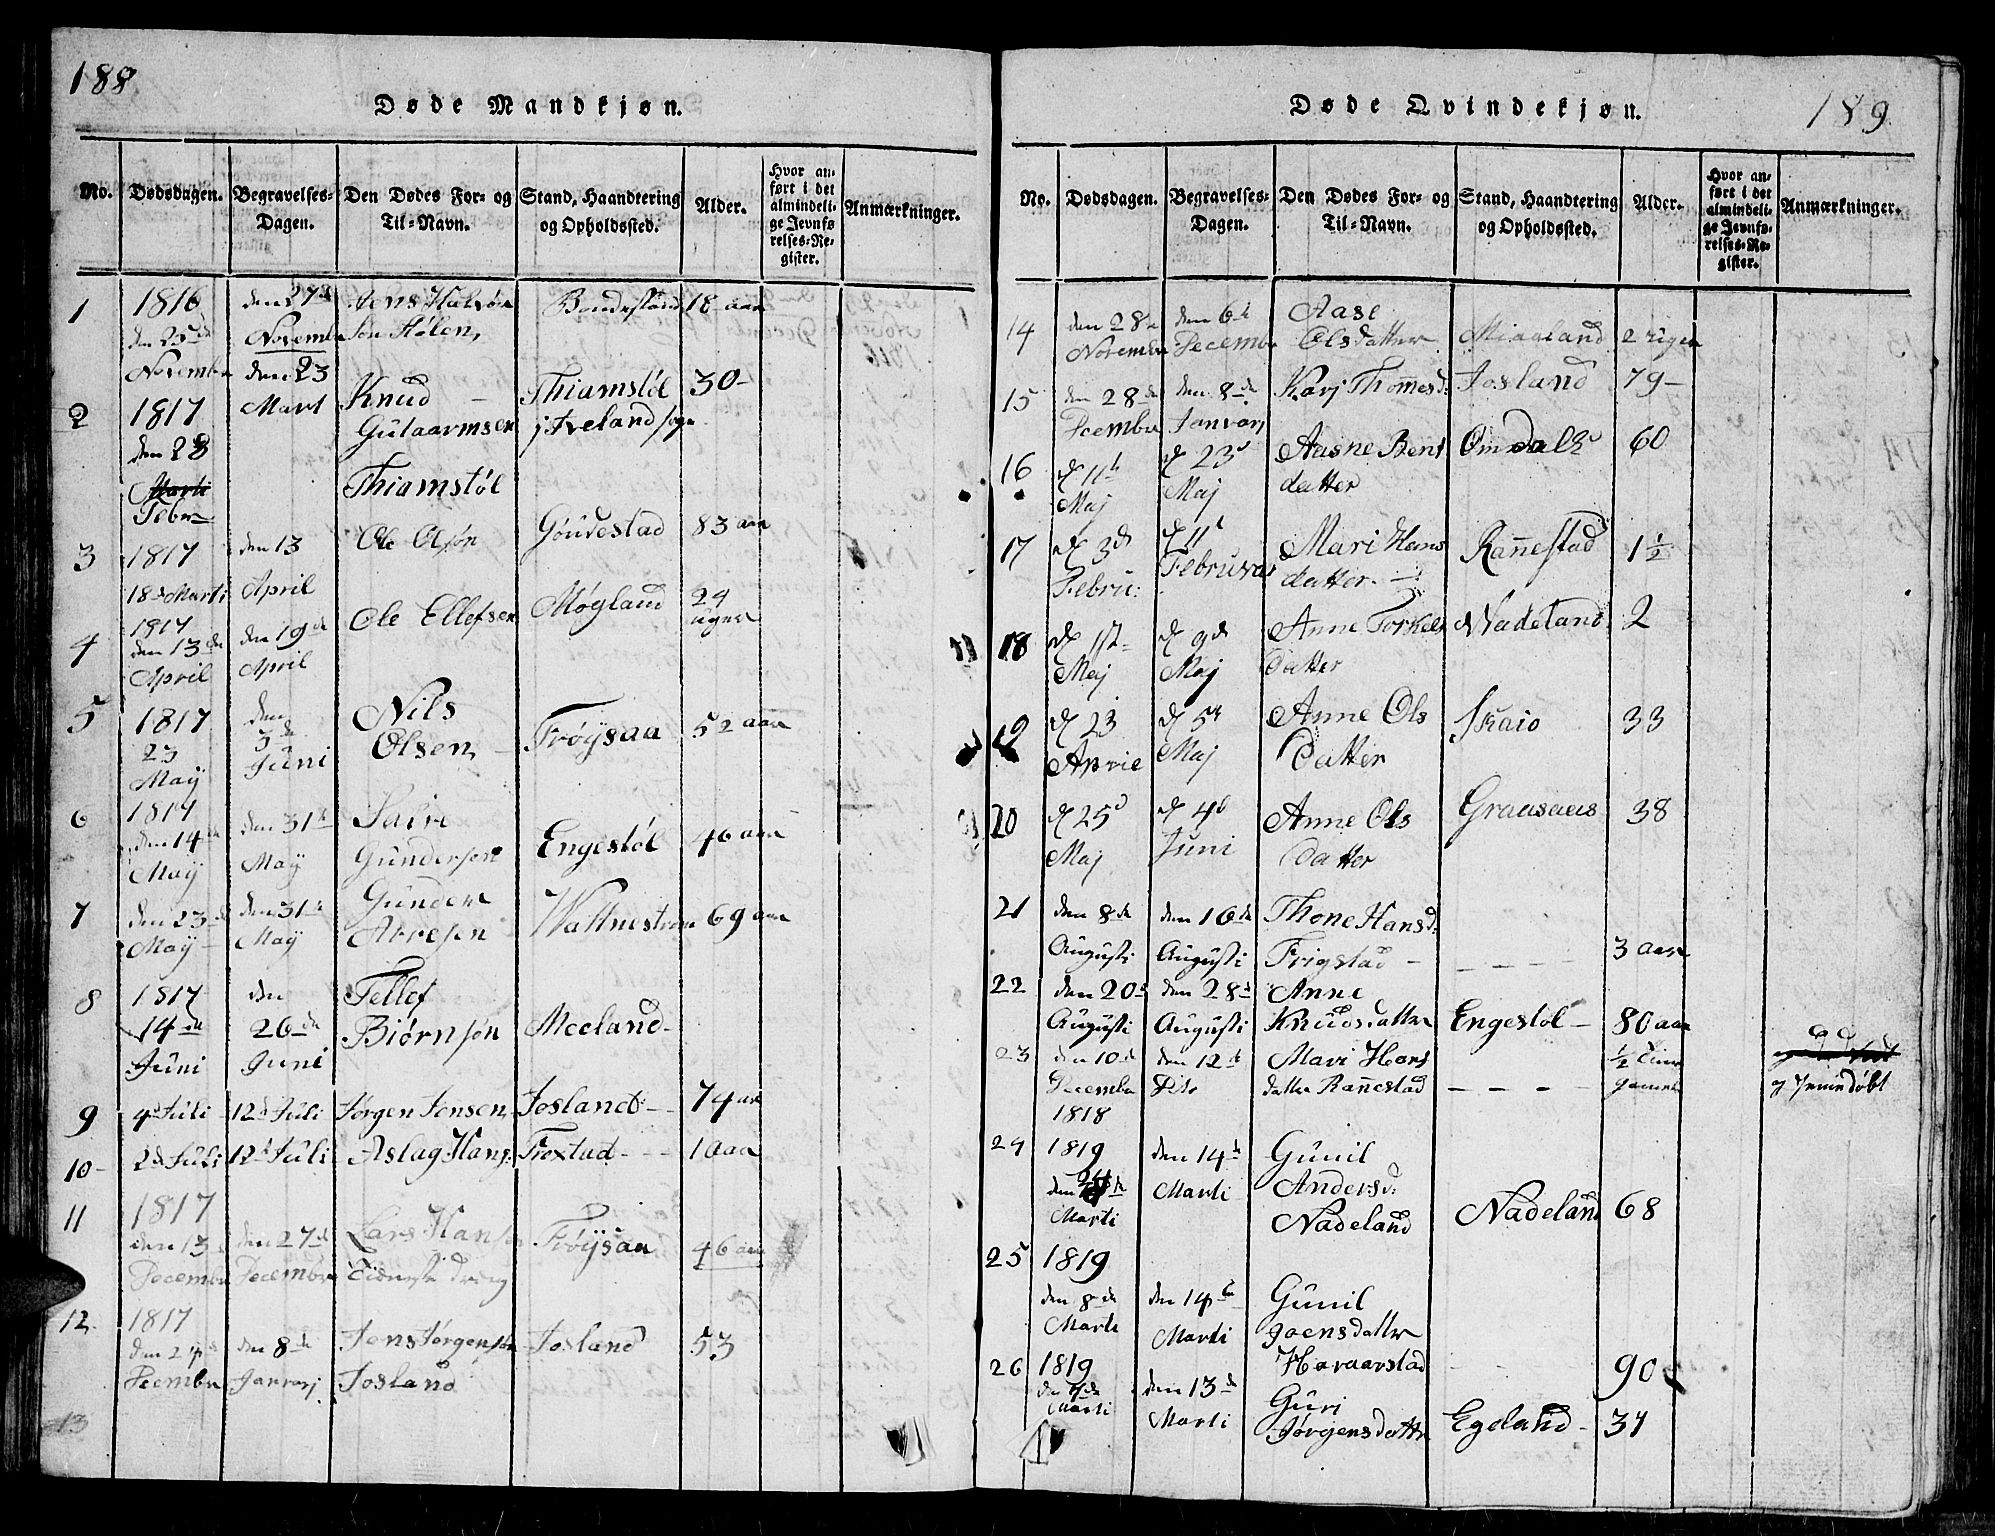 188
Døde Mandkjøn.
No.
Dødsdagen.
Begravelses-
Dagen.
Den Dødes For- og
Til-Navn.
Stand, Haandtering
og Opholdssted.
Alder.
Hvor an-
ført i det
almindeli-
ge Jevnfø-
relses-Re-
gister.
Anmærkninger.
1
1816
den 25de
Novembr
den 27de
Novembr
Søn Hølen,
Bondestand
18 aar
2
1817
den 28
Marti
Febr
den 23
Mart
Knud
Gulaarmsen
Thiamstøl
Thiamstøl
i Iveland sogn
30-
3
1817
18de Marti
den 13
April
Ole Olsøn
83 aar
4
1817
den 13de
April
den 19de
April
Ole Ellefsen
Møgland
24
uger
5
1817
23
Maÿ
den
3de
Juni
Nils
Olsen,
Frøÿsaa
52 aar
6
1817
den 14de
Maÿ
den 31te
Maÿ
Gundersøn
Engestøl
46 aar
7
den 23de
Maÿ
den 31te
Maÿ
Gunder
69 aar
8
1817
14de
Juni
den
26de
Juni
Tellef
Biørnsøn
Meeland-
9
4de Juli
12de Juli
Jørgen Jensen
Josland
74 aar
10-
2de Juli
12te Juli
Aslag Hans:
1 aar
11
1817
den 13de
Decembr
den 27de
Decembr
Lars Hans
Frøÿsaa
46 aar
12
1817
den 24de
Decembr
den 8de
Janvarj
Jens Jørgensøn
Josland
Josland
53
13
189
Døde Qvindekjøn.
No.
Dødsdagen.
Begravelses-
Dagen.
Den Dødes For- og
Til-Navn.
Stand, Haandtering
og Opholdssted.
Alder.
Hvor an-
ført i det
almindeli-
ge Jevnfø-
relses-Re-
gister.
Anmærkninger.
14
den 28de
Novembr
den 6te
Decembr
Aase
Olsdatter
Miaaland
2 uger
15
den 28de
Decembr
den 8de
Janvarj
Karj Thomesd:
Josland
79-
16
d 11te
Maj
d 23d
Maj
Aasne Bent
datter
60
17
d 3de
Febru:
d 11te
Februvar
Mari Hans
datter.
Rannestad
1 ½
18
d 1st
Maj
d 9de
Maj
Anne Torkels
datter
Nadeland
2
19
d 23
Aprie
d 5te
Maj
Anne Ols
datter
Skaio
33
20
d 25d
Maj
d 4de
Juni
Anne Ols
datter
38
21
den 8de
Augusti
den 16de
Augusti
Thone Hansd:
Frigstad
3 aar
22
den 20de
Augusti
den 28de
Augusti
Anne
Knudsdatter
Engestøl
80 aar
23
den 10de
Decembr
1818
den 12te
Dito
Mari Hans
datter Rannestad
½ Time
gammel
hjemmedøbt
24
1819
Marti
den 14de
Marti
Gunil
Andersd:
Nadeland
Nadeland
68
25
1819
den 8de
Marti
den 14de
Marti
Gunil
Joensdatter
Haraarstad
90
26
1819
den 7de
Marti
den 13de
Marti
Guri
Jørgensdattr
Egeland
37